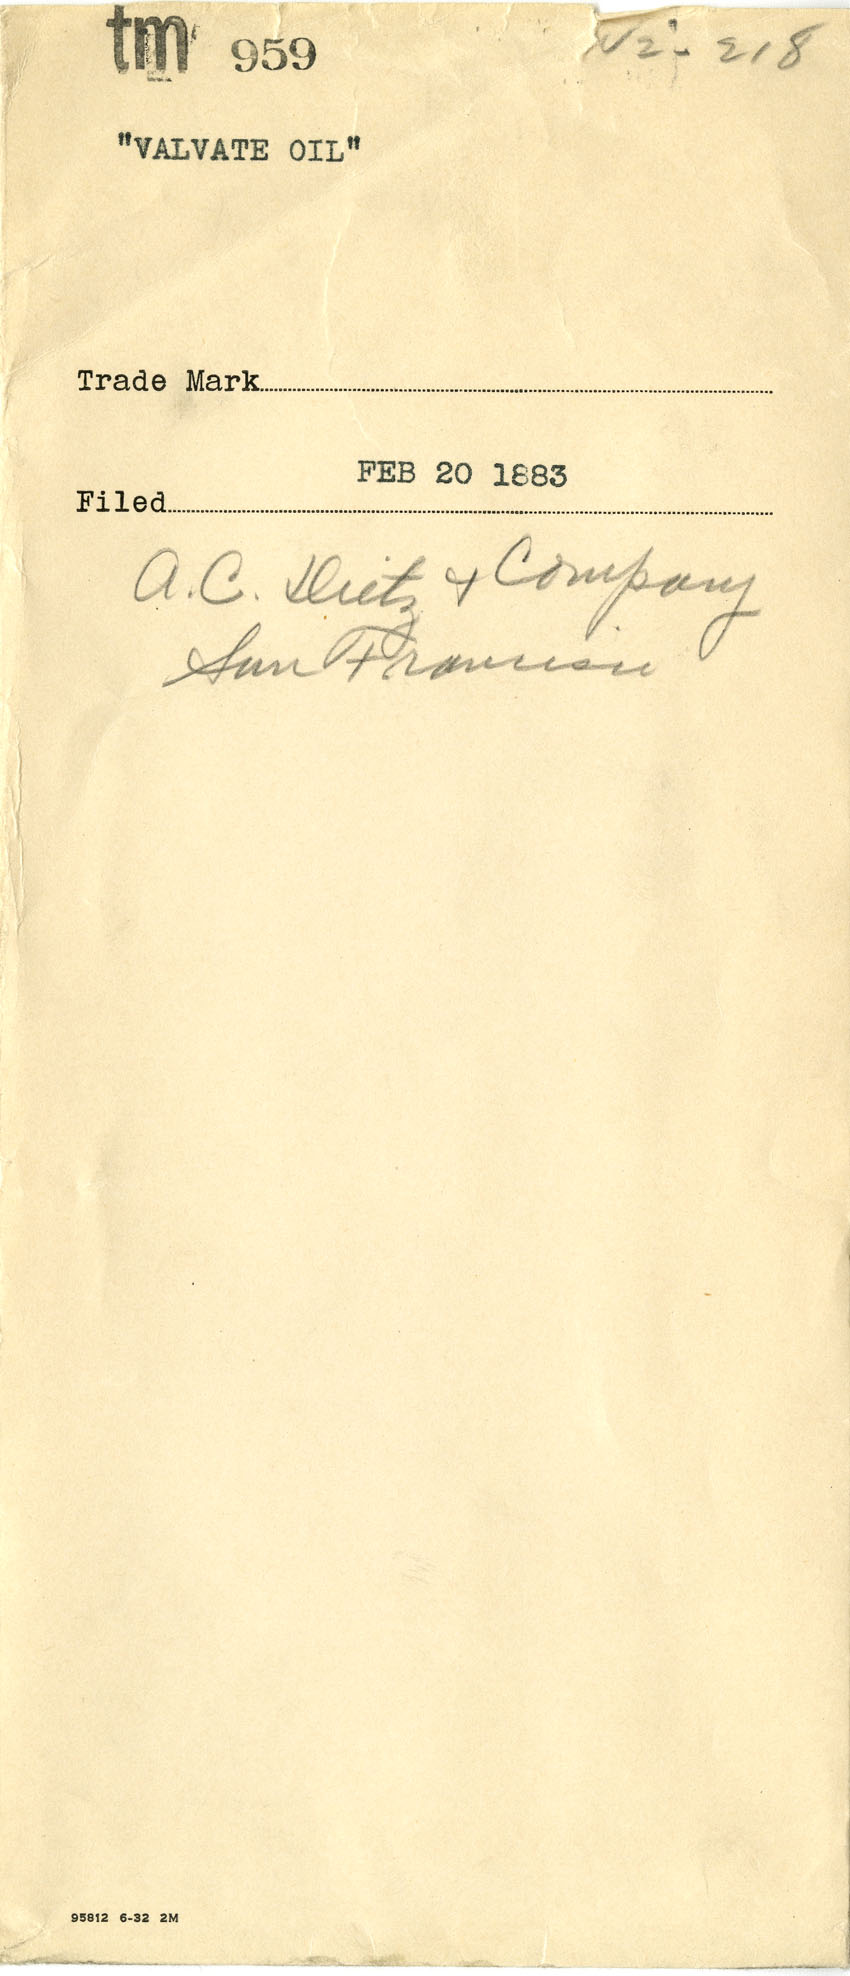 tm 959
V2- 218
"VALVATE OIL"
Trade Mark
FEB 20 1883
Filed
A.C. Dietz & Company
San Francisco
95812 6-32 2M